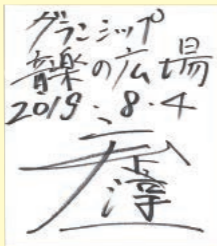 グランシップ
音楽の広場
2019.8.4
広上淳一